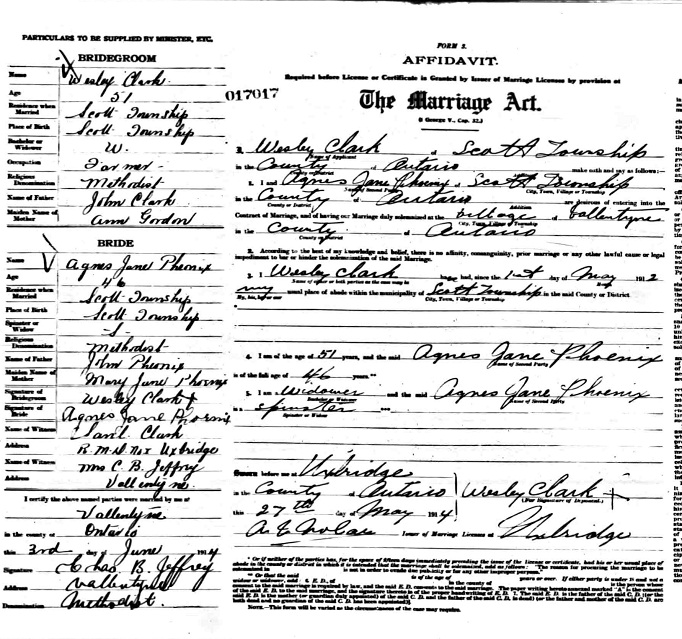 PARTICULARS TO BE SUPPLIED BY MINISTER, ETC.
BRIDEGROOM
Name Wesley Clark
Age 51
Residence when Married Scott Township
Place of Birth Scott Township
Bachelor or Widower W.
Occupation Farmer
Religious Denomination Methodist
Name of Father John Clark
Maiden Name of Mother Ann Gordon
BRIDE
Name Agnes Jane Pheonix
Age 46
Residence when Married Scott Township
Place of Birth Scott Township
Spinster or Widow S
Religious Denomination Methodist
Name of Father John Pheonix
Maiden Name of Mother Mary Jane Phoenix
Signature of Bridegroom Wesley Clark
Signature of Bride Agnes Jane Phoenix
Name of Witness Clark
Address R.M.D. No 2 Uxbridge
Name of Witness Mrs C. B. Jeffry
Address Vallentyne
I certify the above named parties were married by me at
Vallentyne
in the county of Ontario
this 3rd day of June 1914
Signature Chas. B. Jeffrey
Address Vallentyne
Denomination Methodist.
FORM 2.
AFFIDAVIT.
Required before License or Certificate is Granted by Issuer of Marriage Licenses by provision of
017017
The Marriage Act.
(1 George V., Cap. 32.)
I, Wesley Clark of Scott Township
Name of Applicant
in the County of Ontario make oath and say as follows:
County or District
1. I and Agnes Jane Phoenix of Scott Township
Name of Second Party City, Town, Village or Township
in the County of Ontario are desirous of entering into the
County or District Addition
Contract of Marriage, and of having our Marriage duly solemnized at the Village of Vallentyne
City, Town, Village or Township
in the County of Ontario
County or District
2. According to the best of my knowledge and belief, there is no affinity, consanguinity, prior marriage or any other lawful cause or legal
impediment to bar or hinder the solemnization of the said Marriage.
3. I Wesley Clark had, since the 1st day of May 1912
Name of either or both parties as the case may be
my usual place of abode within the municipality of Scott Township in the said County or District
My, his, her or our City, Town, Village or Township
4. I am of the age of 51 years, and the said Agnes Jane Phoenix
Name of Second Party
is of the full age of 46 years.
5. I am a Widower and the said Agnes Jane Phoenix
Bachelor or Widower Name of Second Party
is a Spinster
Spinster or Widow
Sworn before me at Uxbridge
in the County of Ontario Wesley Clark
(For Signature of Deponent.)
this 27th day of May 1914
Issuer of Marriage Licenses at Uxbridge
NOTE.—This form will be varied as the circumstances of the case may require.